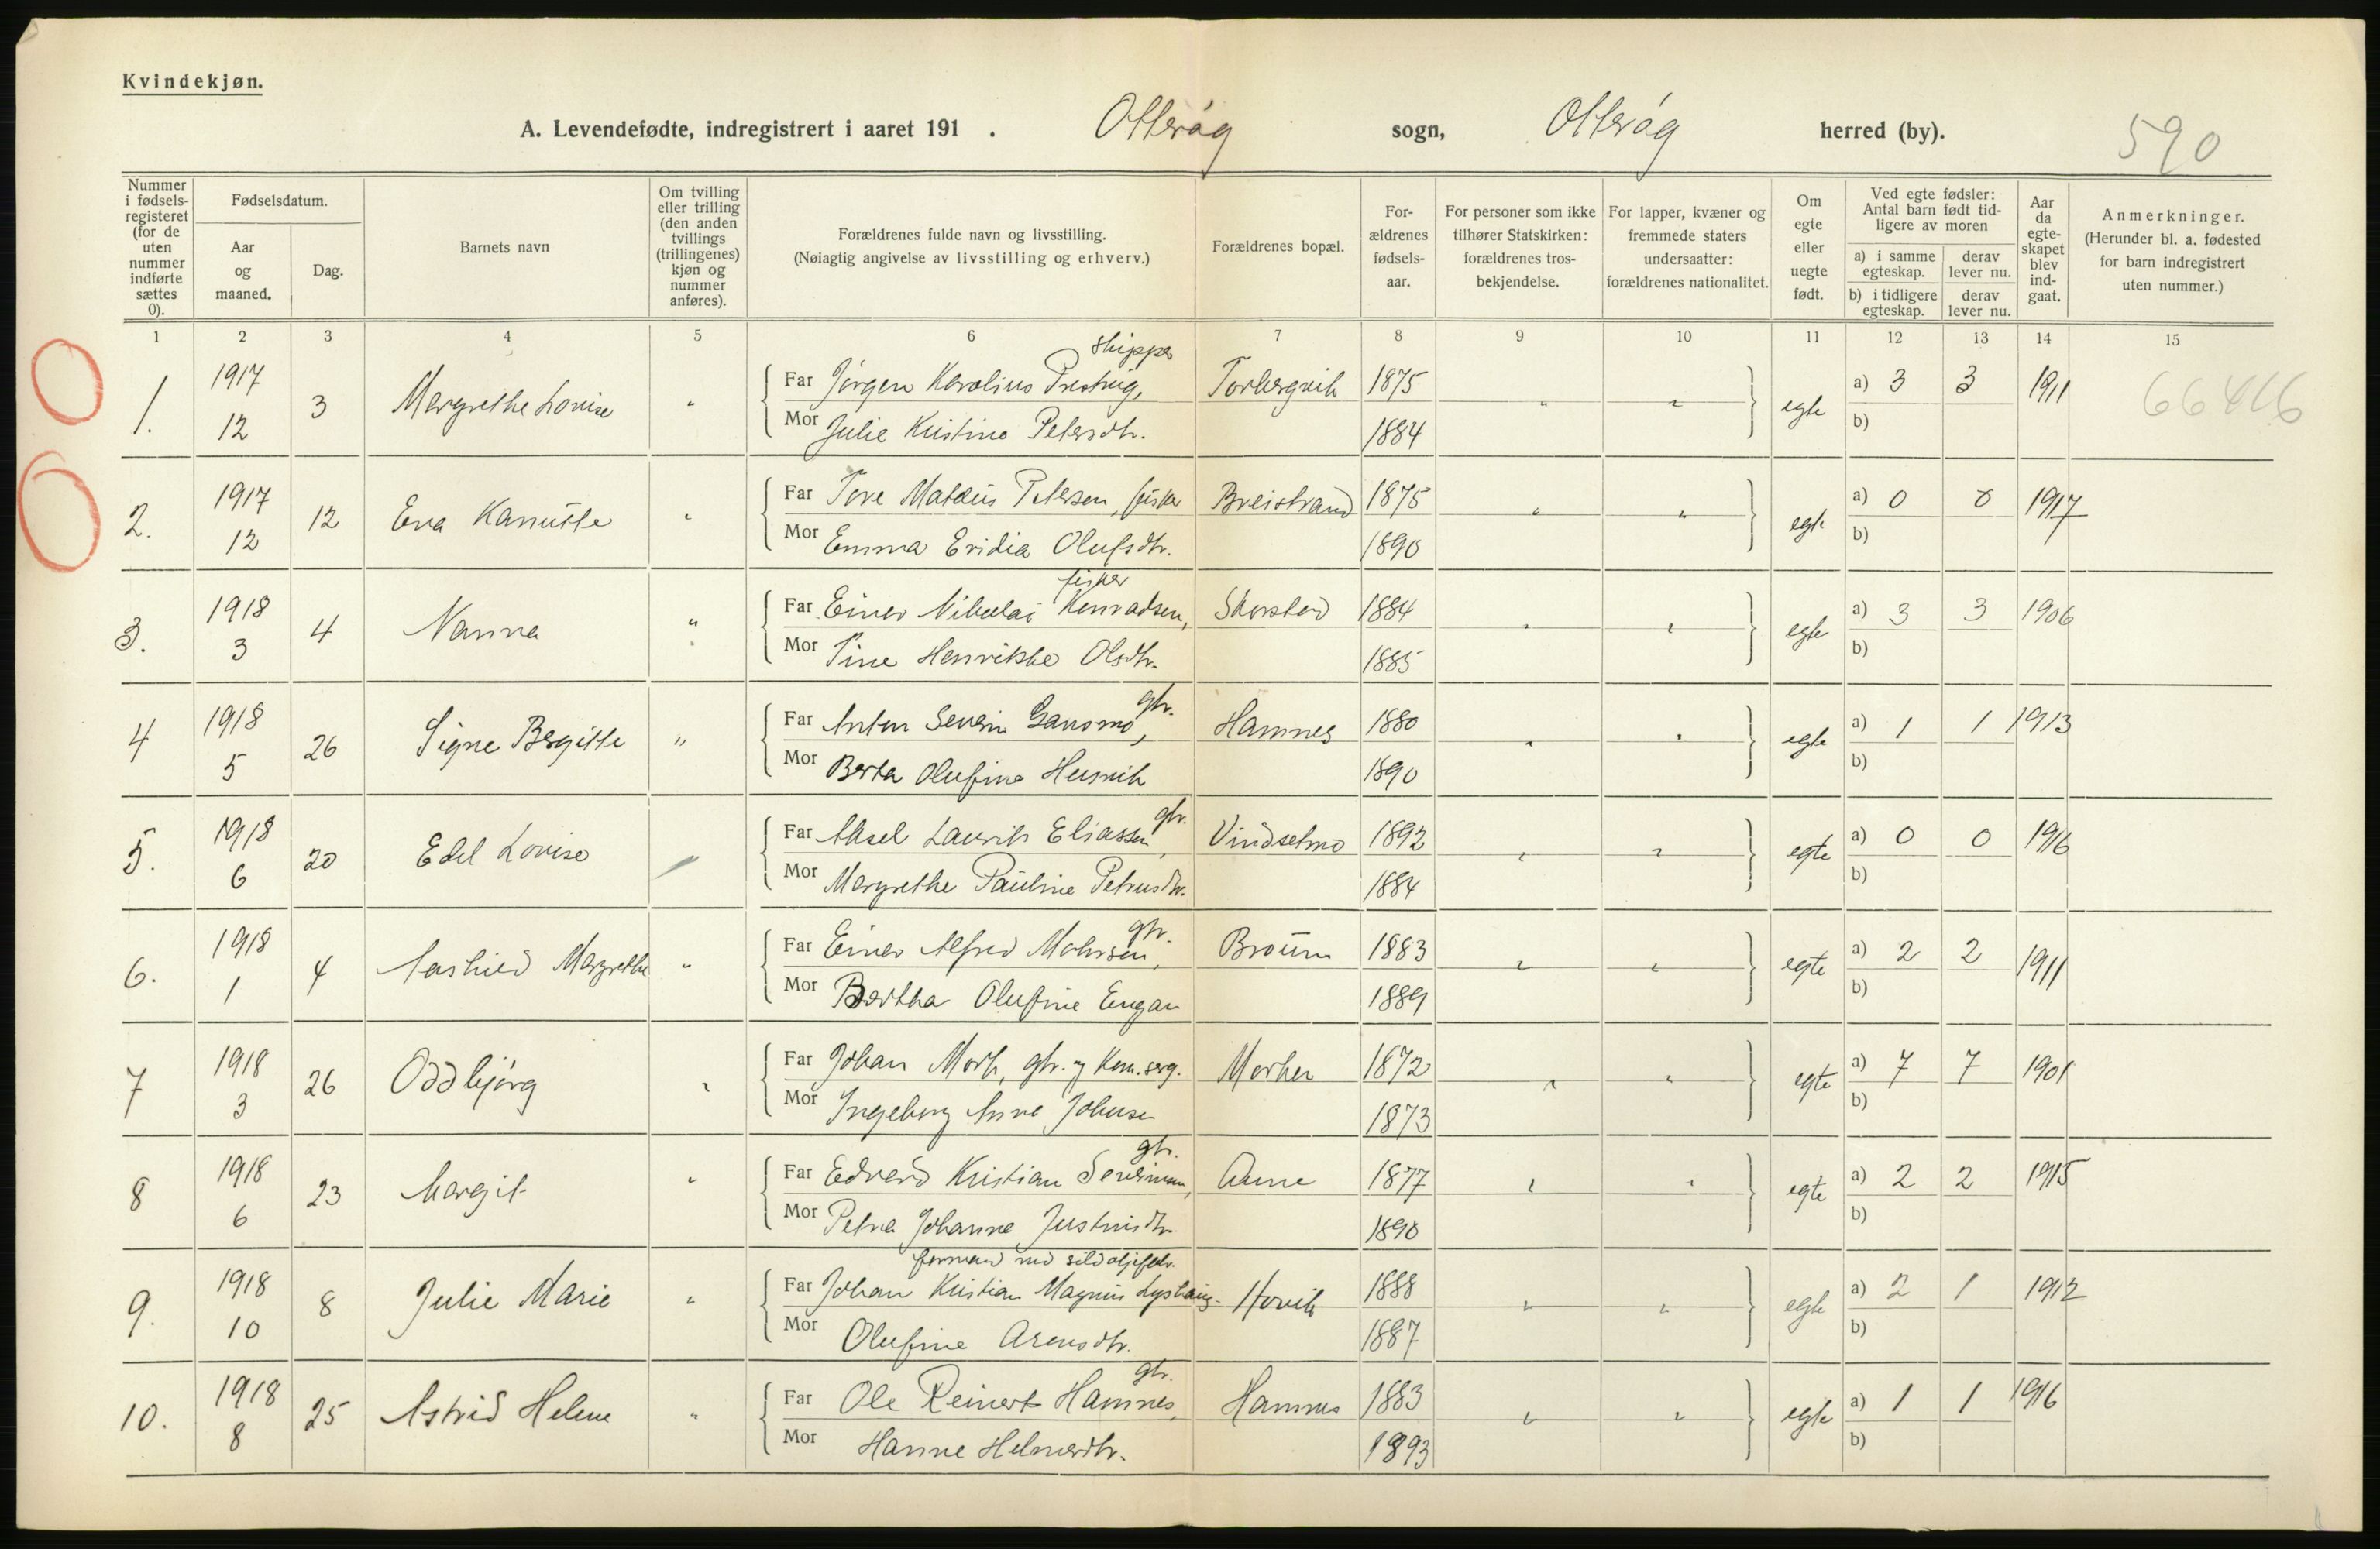 Kvindekjøn.
A. Levendefødte, indregistrert i aaret 191 . Otterøy sogn, Otterøy herred (by). 590
Nummer i fødsels-registeret (for de uten nummer indførte sættes 0).
Fødselsdatum.
Aar og maaned.
Dag.
Barnets navn
Om tvilling eller trilling (den anden tvillings (trillingenes) kjøn og nummer anføres).
Forældrenes fulde navn og livsstilling.
(Nøiagtig angivelse av livsstilling og erhverv.)
Forældrenes bopæl.
For-ældrenes fødsels-aar.
For personer som ikke tilhører Statskirken: forældrenes tros-bekjendelse.
For lapper, kvæner og fremmede staters undersaatter: forældrenes nationalitet.
Om egte eller uegte født.
Ved egte fødsler: Antal barn født tid-ligere av moren
a) i samme egteskap. derav lever nu.
b) i tidligere egteskap. derav lever nu.
Aar da egte-skapet blev ind-gaat.
Anmerkninger.
(Herunder bl. a. fødested for barn indregistrert uten nummer.)
1 2 3 4 5 6 7 8 9 10 11 12 13 14 15
skipper
1. 1917 3 Margrethe Lovise " Far Jørgen Karolius Torbergvik 1875 " " egte a) 3 3 1911
12 Mor Julie Kristine Petersdtr. 1884 b)
2. 1917 12 Eva Kanutte " Far Tore Mataus Petersen, fisker Breistrand 1875 " " egte a) 0 0 1917
12 Mor Emma Eridia Olufsdtr. 1890 b)
fisker
3. 1918 4 Nanna " Far Einar Nikolai Konradsen, Skorstad 1884 " " egte a) 3 3 1906
3 Mor Tine Henrikke Olsdtr. 1885 b)
gbr.
4 1918 26 Signe Bergitte " Far Anton Severin Gansmo, Hamnes 1880 " " egte a) 1 1 1913
5 Mor Berta Olufine Husvik 1890 b)
gbr.
5. 1918 20 Edel Lovise " Far Aksel Laurits Eliassen, Vindsetmo 1892 " " egte a) 0 0 1916
6 Mor Margrethe Pauline Petrusdtr. 1884 b)
gbr.
6. 1918 4 Aashild Margrethe " Far Einar Alfred 1883 " " egte a) 2 2 1911
1 Mor Bertha Olufine Engan 1889 b)
7 1918 26 Oddbjørg " Far Johan Mork, gbr. og Kom.serg. Morken 1872 " " egte a) 7 7 1901
3 Mor Ingeborg Anna Johnsen 1873 b)
gbr.
8 1918 23 Margit " Far Edvard Kristian Severinsen, Aune 1877 " " egte a) 2 2 1915
6 Mor Petra Johanna Justnisdtr. 1890 b)
formand ved sildoljefabr.
9. 1918 8 Julie Marie " Far Johan Kristian Magnus Hovik 1888 " " egte a) 2 1 1912
10 Mor Olufine Arensdtr. 1887 b)
gbr.
10. 1918 25 Astrid Helene " Far Ole Reinert Hamnes, Hamnes 1883 " " egte a) 1 1 1916
8 Mor Hanne Helmersdtr. 1893 b)